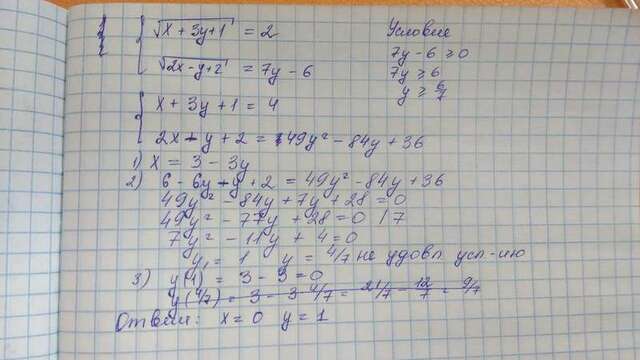 { √x + 3y + 1 = 2
Условие
√2x - y + 2 = 7y - 6
7y - 6 ≥ 0
7y ≥ 6
y ≥ 6/7
{ x + 3y + 1 = 4
2x - y + 2 = 49y² - 84y + 36
1) x = 3 - 3y
2) 6 - 6y - y + 2 = 49y² - 84y + 36
49y² - 84y + 7y + 28 = 0
49y² - 77y + 28 = 0 / 7
7y² - 11y + 4 = 0
y₁ = 1 y = 4/7 не удовл. усл-ию
3) y(1) = 3 - 3 = 0
y(4/7) = 3 - 3 4/7 = 21/7 - 12/7 = 9/7
Ответ: x = 0 y = 1